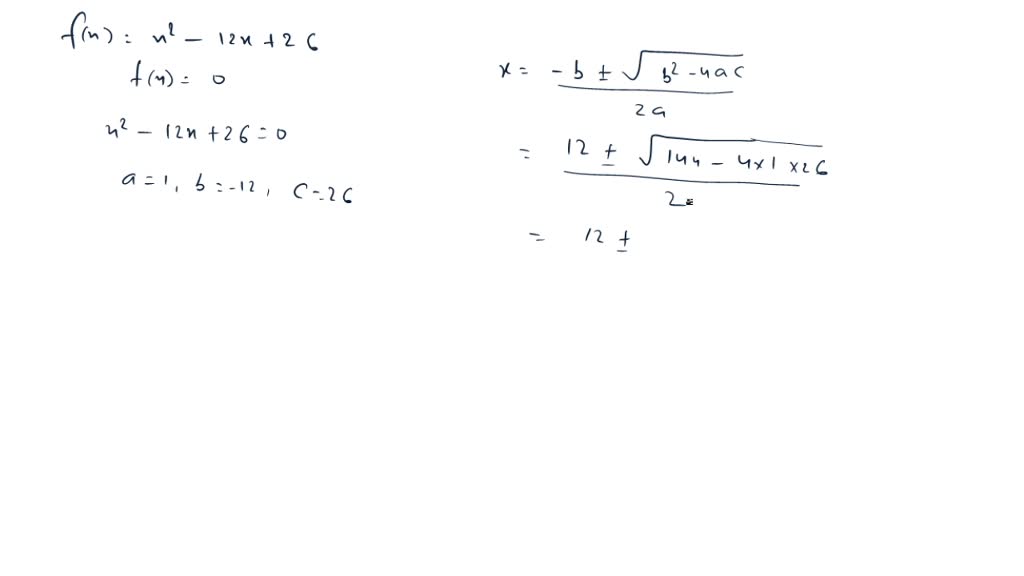 f(x) = x² - 12x + 26
f(x) = 0
x² - 12x + 26 = 0
a = 1, b = -12, c = 26
x = -b ± √(b² - 4ac) / 2a
= 12 ± √(144 - 4×1×26) / 2
= 12 ±